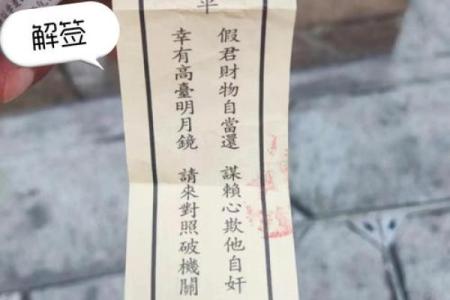 解签
平
假君財物自當還 謀賴心欺他自奸
幸有高臺明月鏡 請來對照破機關